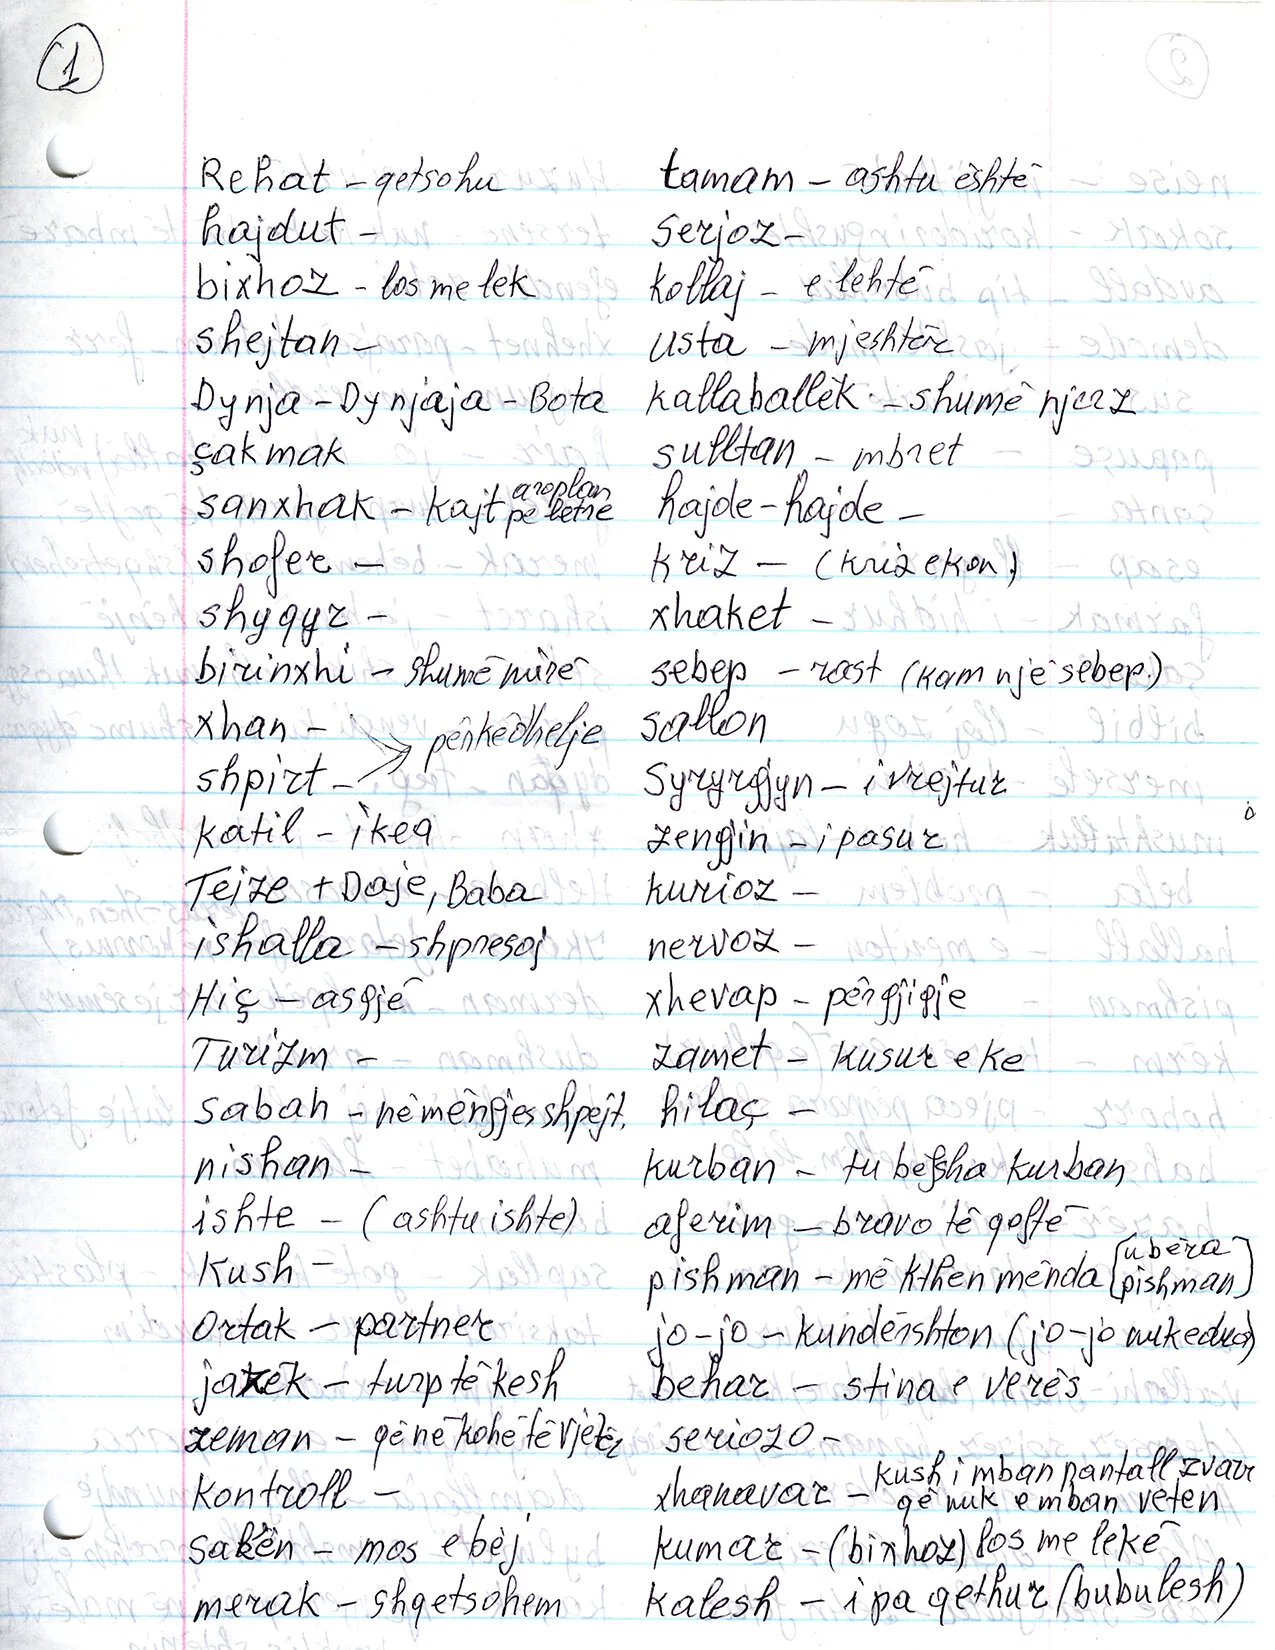 1
Rehat - qetsohu
hajdut -
bixhoz - los me lek
shejtan -
Dynja - Dynjaja - Bota
çakmak
sanxhak - kajt aroplan pe letre
shofer -
shyqyr -
birinxhi - shumë mirë
xhan -
shpirt - përkëdhelje
katil - ikea
Tejze + Daje, Baba
ishalla - shpresoj
Hiç - asgjë
Turizm -
sabah - në mëngjes shpejt.
nishan -
ishte - (ashtu ishte)
Kush -
Ortak - partner
jazëk - turp të kesh
zeman - që në kohë të vjetër
Kontroll -
sakën - mos e bëj
merak - shqetsohem
tamam - ashtu është
serjoz -
kollaj - e lehtë
usta - mjeshtër
kallaballëk - shumë njerz
sulltan - mbret
hajde - hajde -
kriz - (kriz ekon.)
xhaket -
sebep - rast (kam një sebep.)
sallon
Syryrgjyn - i vrejtur
zengjin - i pasur
kurioz -
nervoz -
xhevap - përgjigje
zamet - kusur e ke
hilaç -
kurban - tu bëfsha kurban
aferim - bravo të qoftë
pishman - më kthen mënda [u bëra pishman]
jo-jo - kundërshton (jo-jo nuk e dua)
behar - stina e verës
seriozo -
xhanavar - kush i mban pantall zvarr
që nuk e mban veten
kumar - (bixhoz) los me lekë
kalesh - i pa qethur (bubulesh)